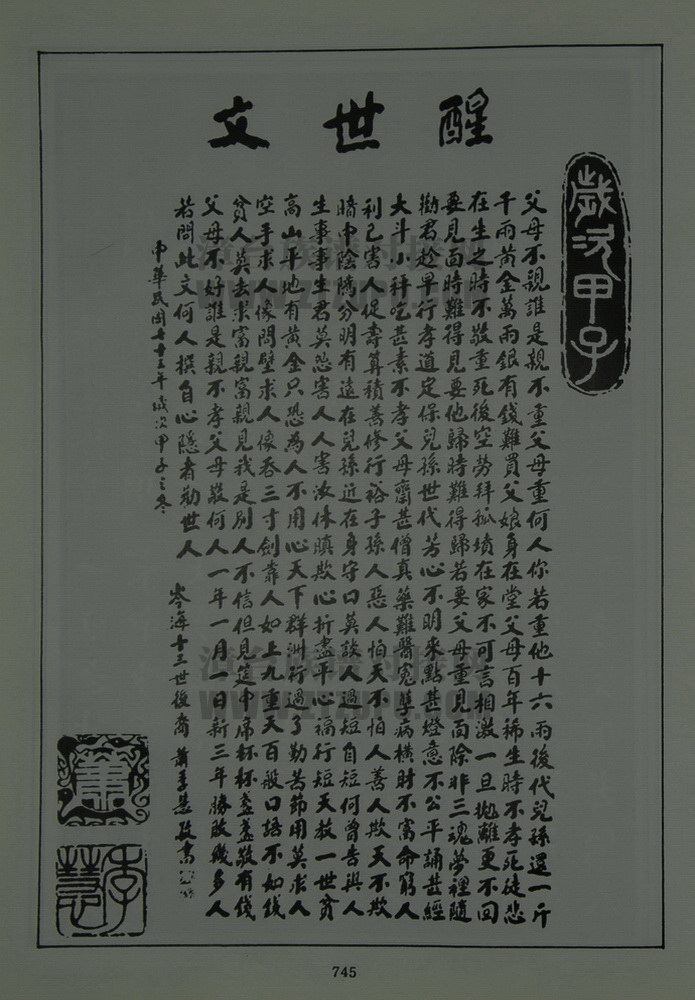 醒世文
歲次甲子
父母不親誰是親不重父母重何人你若重他十六兩後代兒孫還一斤
千兩黃金萬兩銀有錢難買父娘身在堂父母百年稀生時不孝死徒悲
在生之時不敬重死後空勞拜孤墳在家不可言相激一旦拋離更不回
要見面時難得見要他歸時難得歸若要父母重見面除非三魂夢裡隨
勸君趁早行孝道定保兒孫世代芳心不明來點甚燈意不公平誦甚經
大斗小秤吃甚素不孝父母齋甚僧真藥難醫冤孽病橫財不富命窮人
利己害人促壽算積善修行裕子孫人惡人怕天不怕人善人欺天不欺
暗中陰隲分明有遠在兒孫近在身守口莫談人過短自短何曾告與人
生事事生君莫怨害人人害汝休嗔欺心折盡平心福行短天教一世貧
高山平地有黃金只恐為人不用心天下群洲行過了勤苦節用莫求人
空手求人像問壁求人像吞三寸劍靠人如上九重天百般口語不如錢
貧人莫去求富親富親見我是別人不信但見筵中席杯杯盞盞敬有錢
父母不好誰是親不孝父母敬何人一年一月一日新三年勝敗幾多人
若問此文何人撰自心隱者勸世人
中華民國七十三年歲次甲子之冬
岑海十三世後裔 蕭季慧敬書
蕭
季慧
745